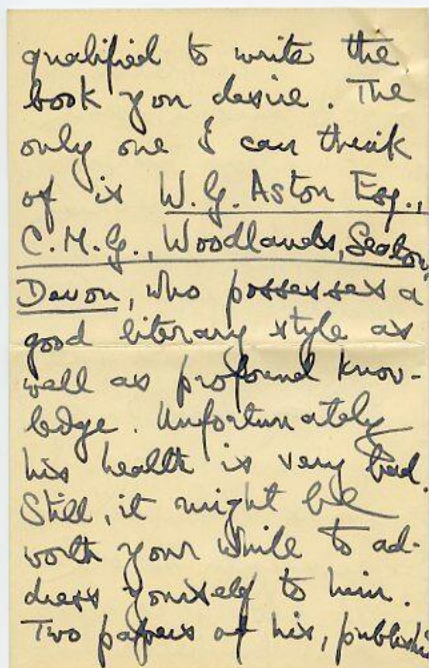 qualified to write the
book you desire. The
only one I can think
of is W.G. Aston Esq.,
C.M.G., Woodlands, Seaton,
Devon, who possesses a
good literary style as
well as profound know-
ledge. Unfortunately
his health is very bad.
Still, it might be
worth your while to ad-
dress yourself to him.
Two papers of his, publishe